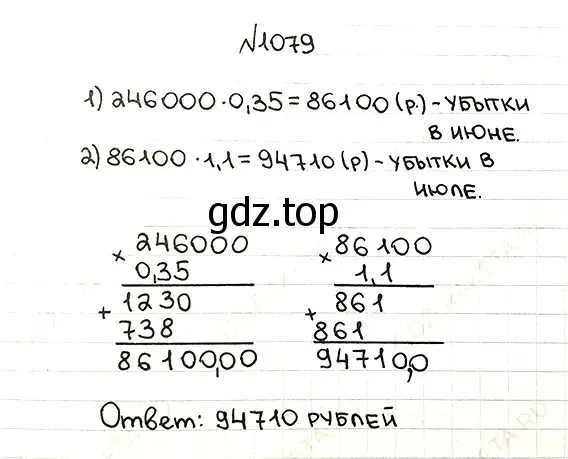 №1079
1) 246000·0,35=86100 (р.) - УБЫТКИ
В ИЮНЕ.
2) 86100 · 1,1= 94710 (р) - УБЫТКИ В
ИЮЛЕ.
gdz.top
× 246000
0,35
+ 1230
738
86100,00
× 86100
1,1
+ 861
861
94710,0
Ответ: 94710 РУБЛЕЙ